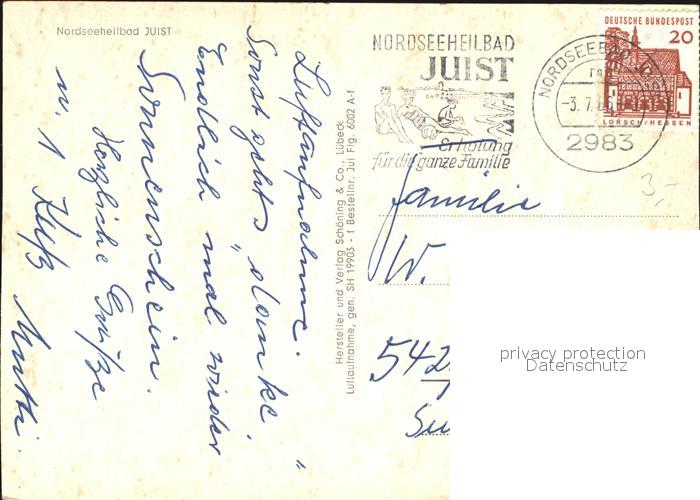 Nordseeheilbad JUIST
Luftaufnahme.
Sonst geht's „danke“
Endlich mal wieder
Sonnenschein.
Herzliche Grüße
u. 1 Kuß Mutti.
Hersteller und Verlag Schöning & Co., Lübeck
Luftaufnahme, gen. SH 19903 - f Bestellnr. Jui Flg. 6002 A-f
NORDSEEHEILBAD
JUIST
Erholung
für die ganze Familie
NORDSEEBAD
-3.7.
2983
DEUTSCHE BUNDESPOST
20
LORSCH/HESSEN
3,-
Familie
W.
542
privacy protection
Datenschutz